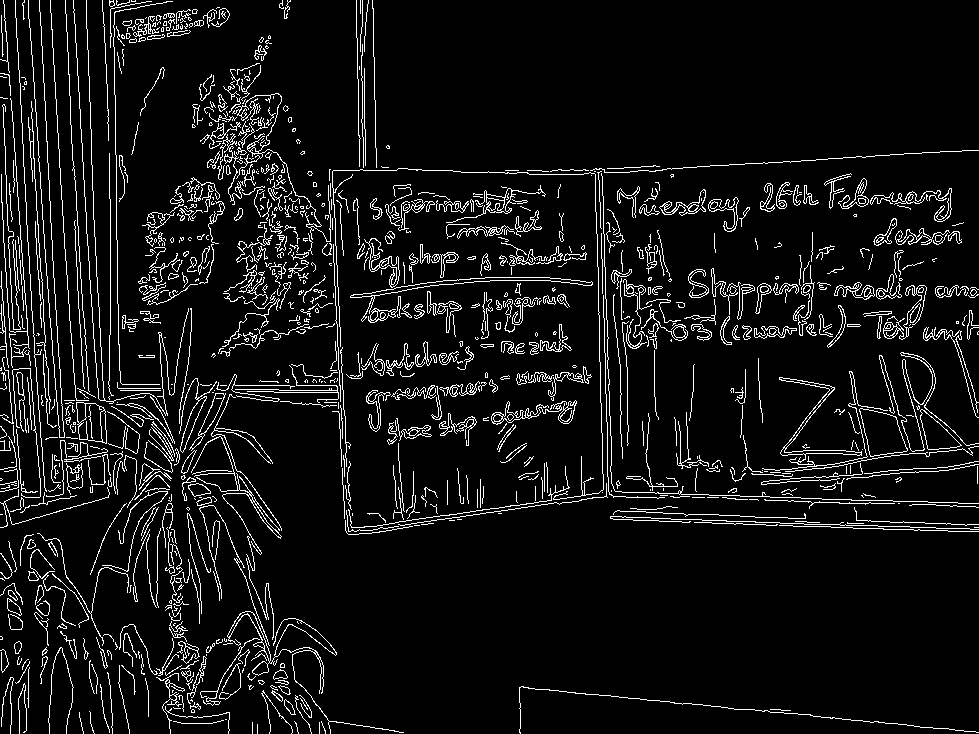 supermarket
market
toy shop - s. zabawkami
bookshop - księgarnia
butcher's - rzeźnik
greengrocer's - warzywniak
shoe shop - obuwniczy
Tuesday, 26th February
Lesson
Topic: Shopping - reading and
03 (czwartek) - Test unit